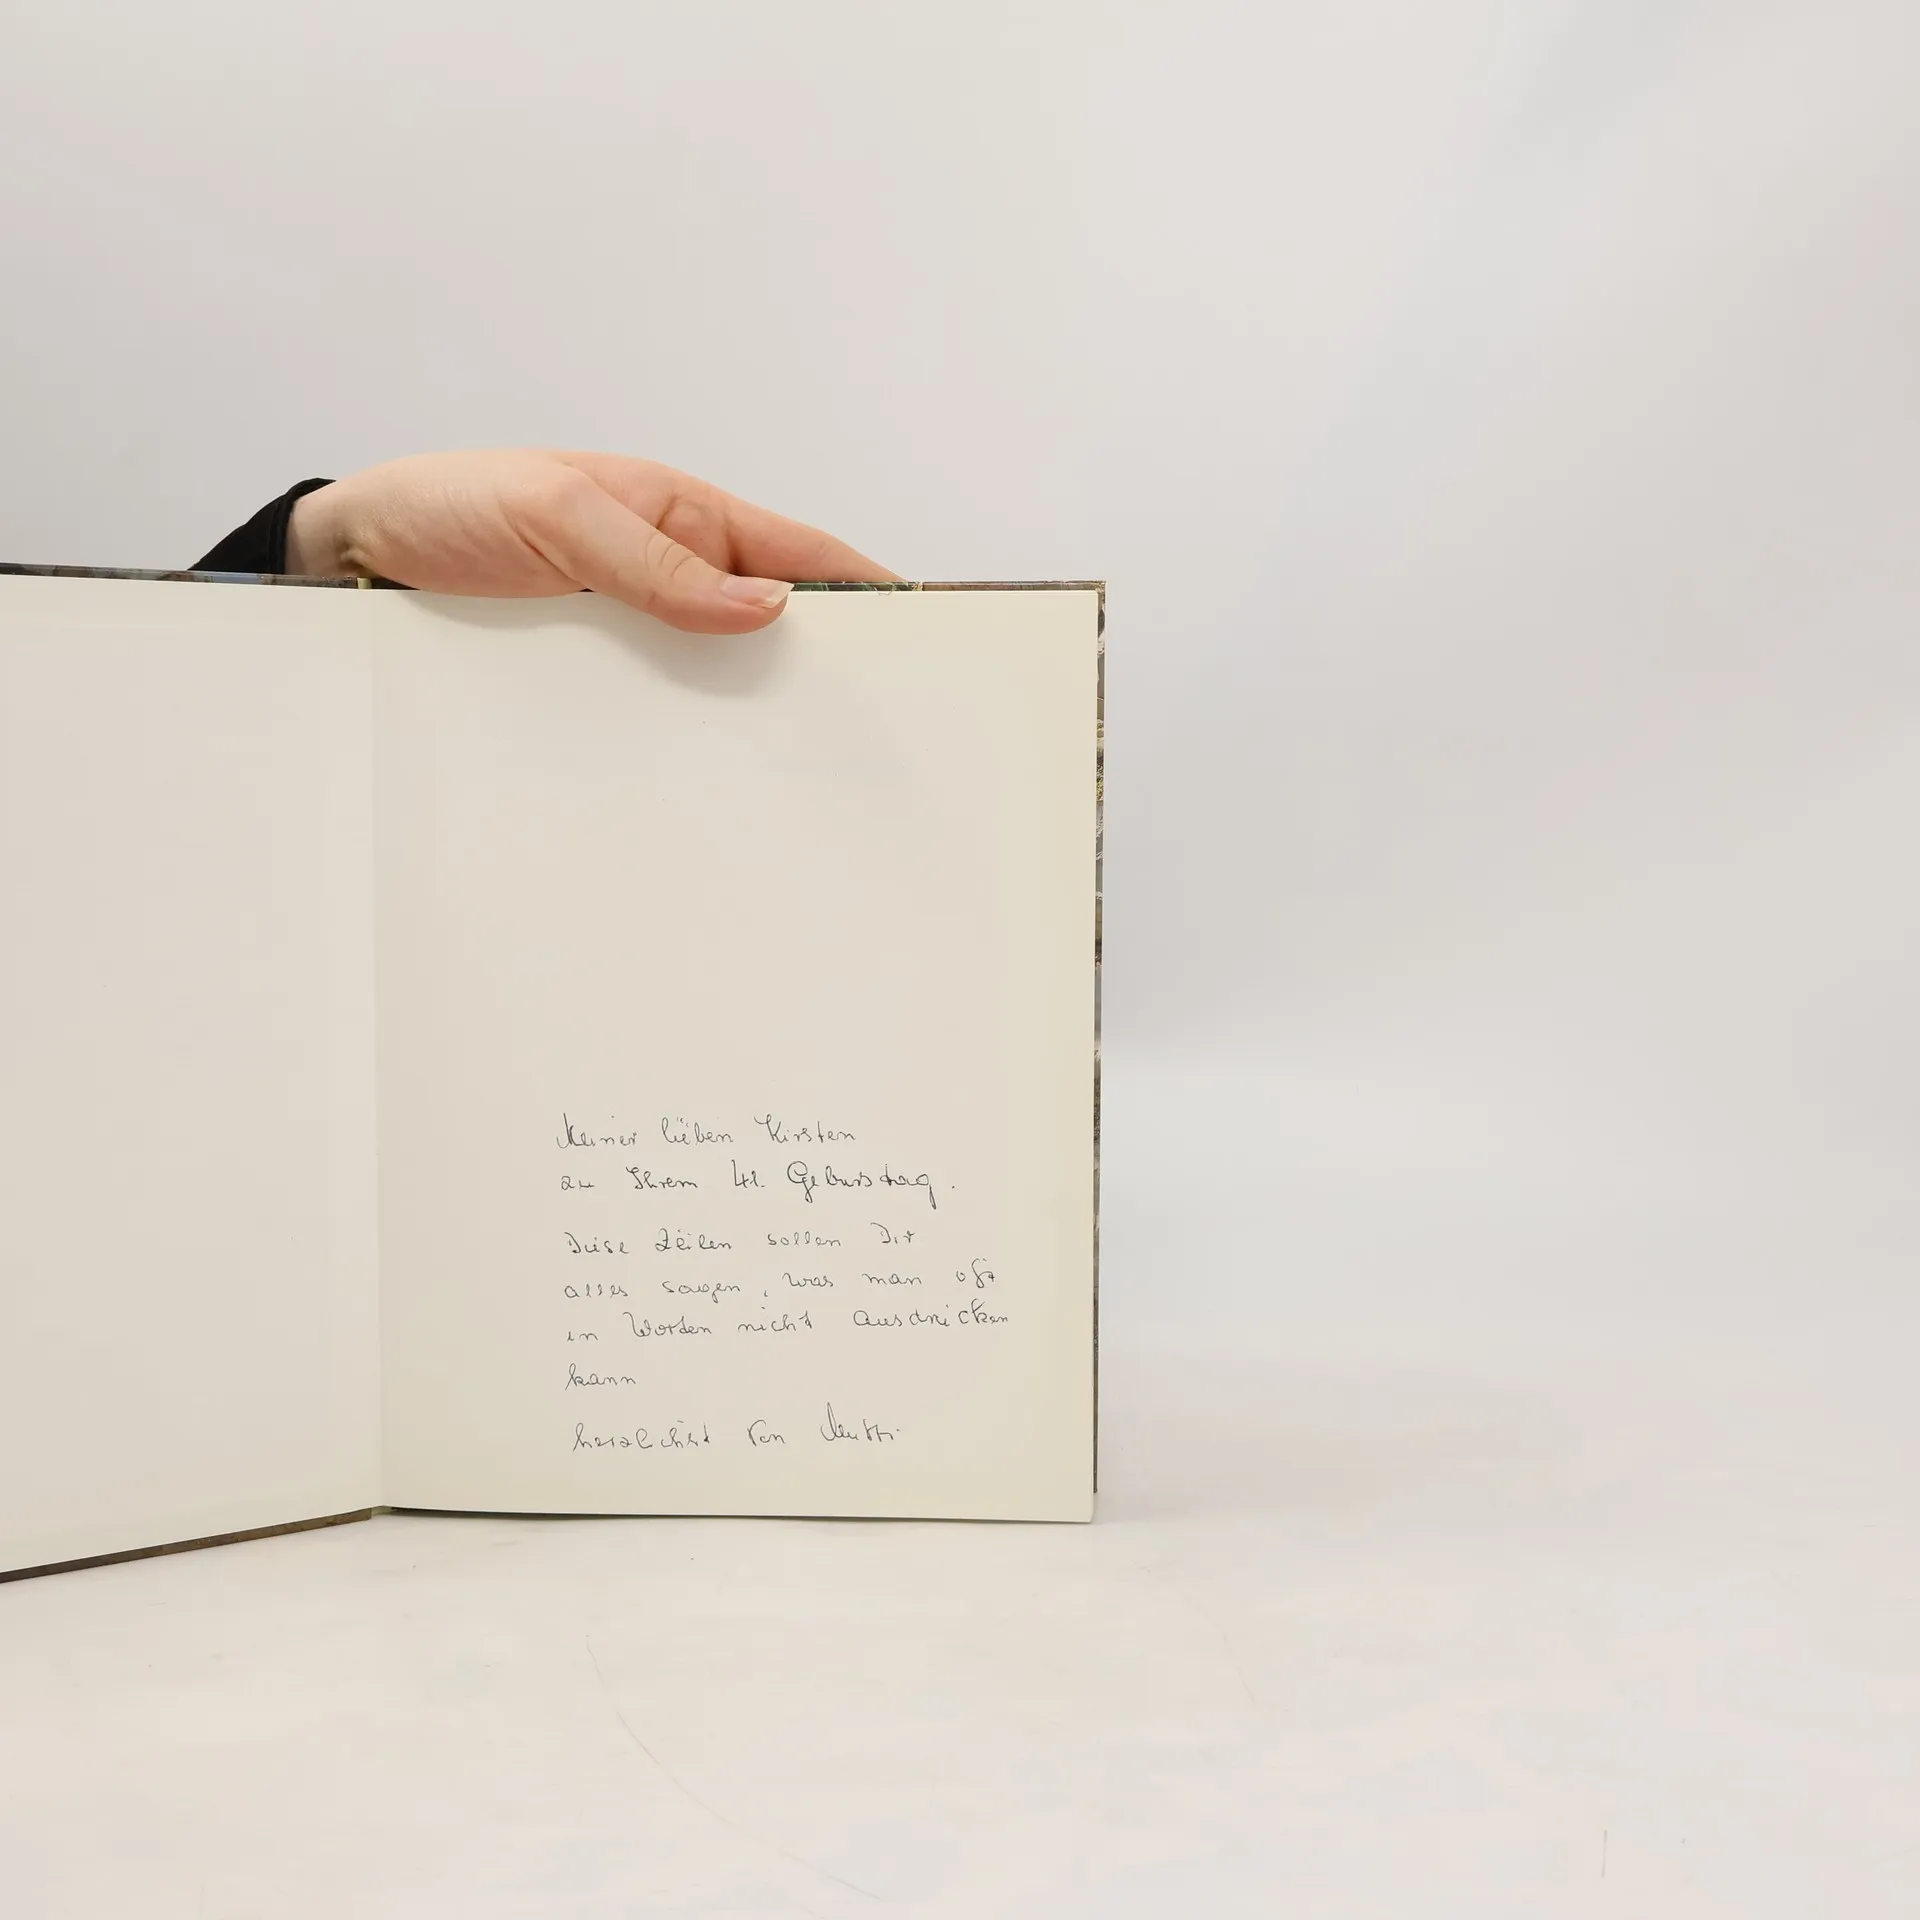 Meiner lieben Kirsten
zu Ihrem 41. Geburstag.
Diese Zeilen sollen Dir
alles sagen, was man oft
in Worten nicht ausdrücken
kann
herzlichst von Mutti